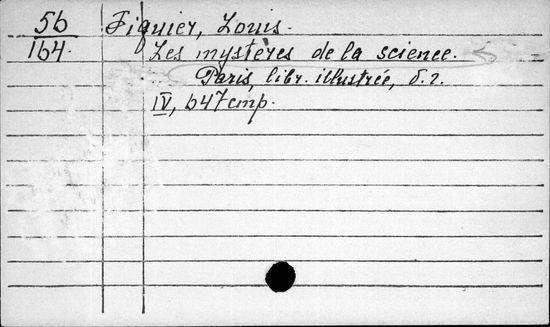 56 Figuier, Louis.
164. Les mystères de la science.
Paris, libr. illustrée, б. г.
IV, 647 стр.